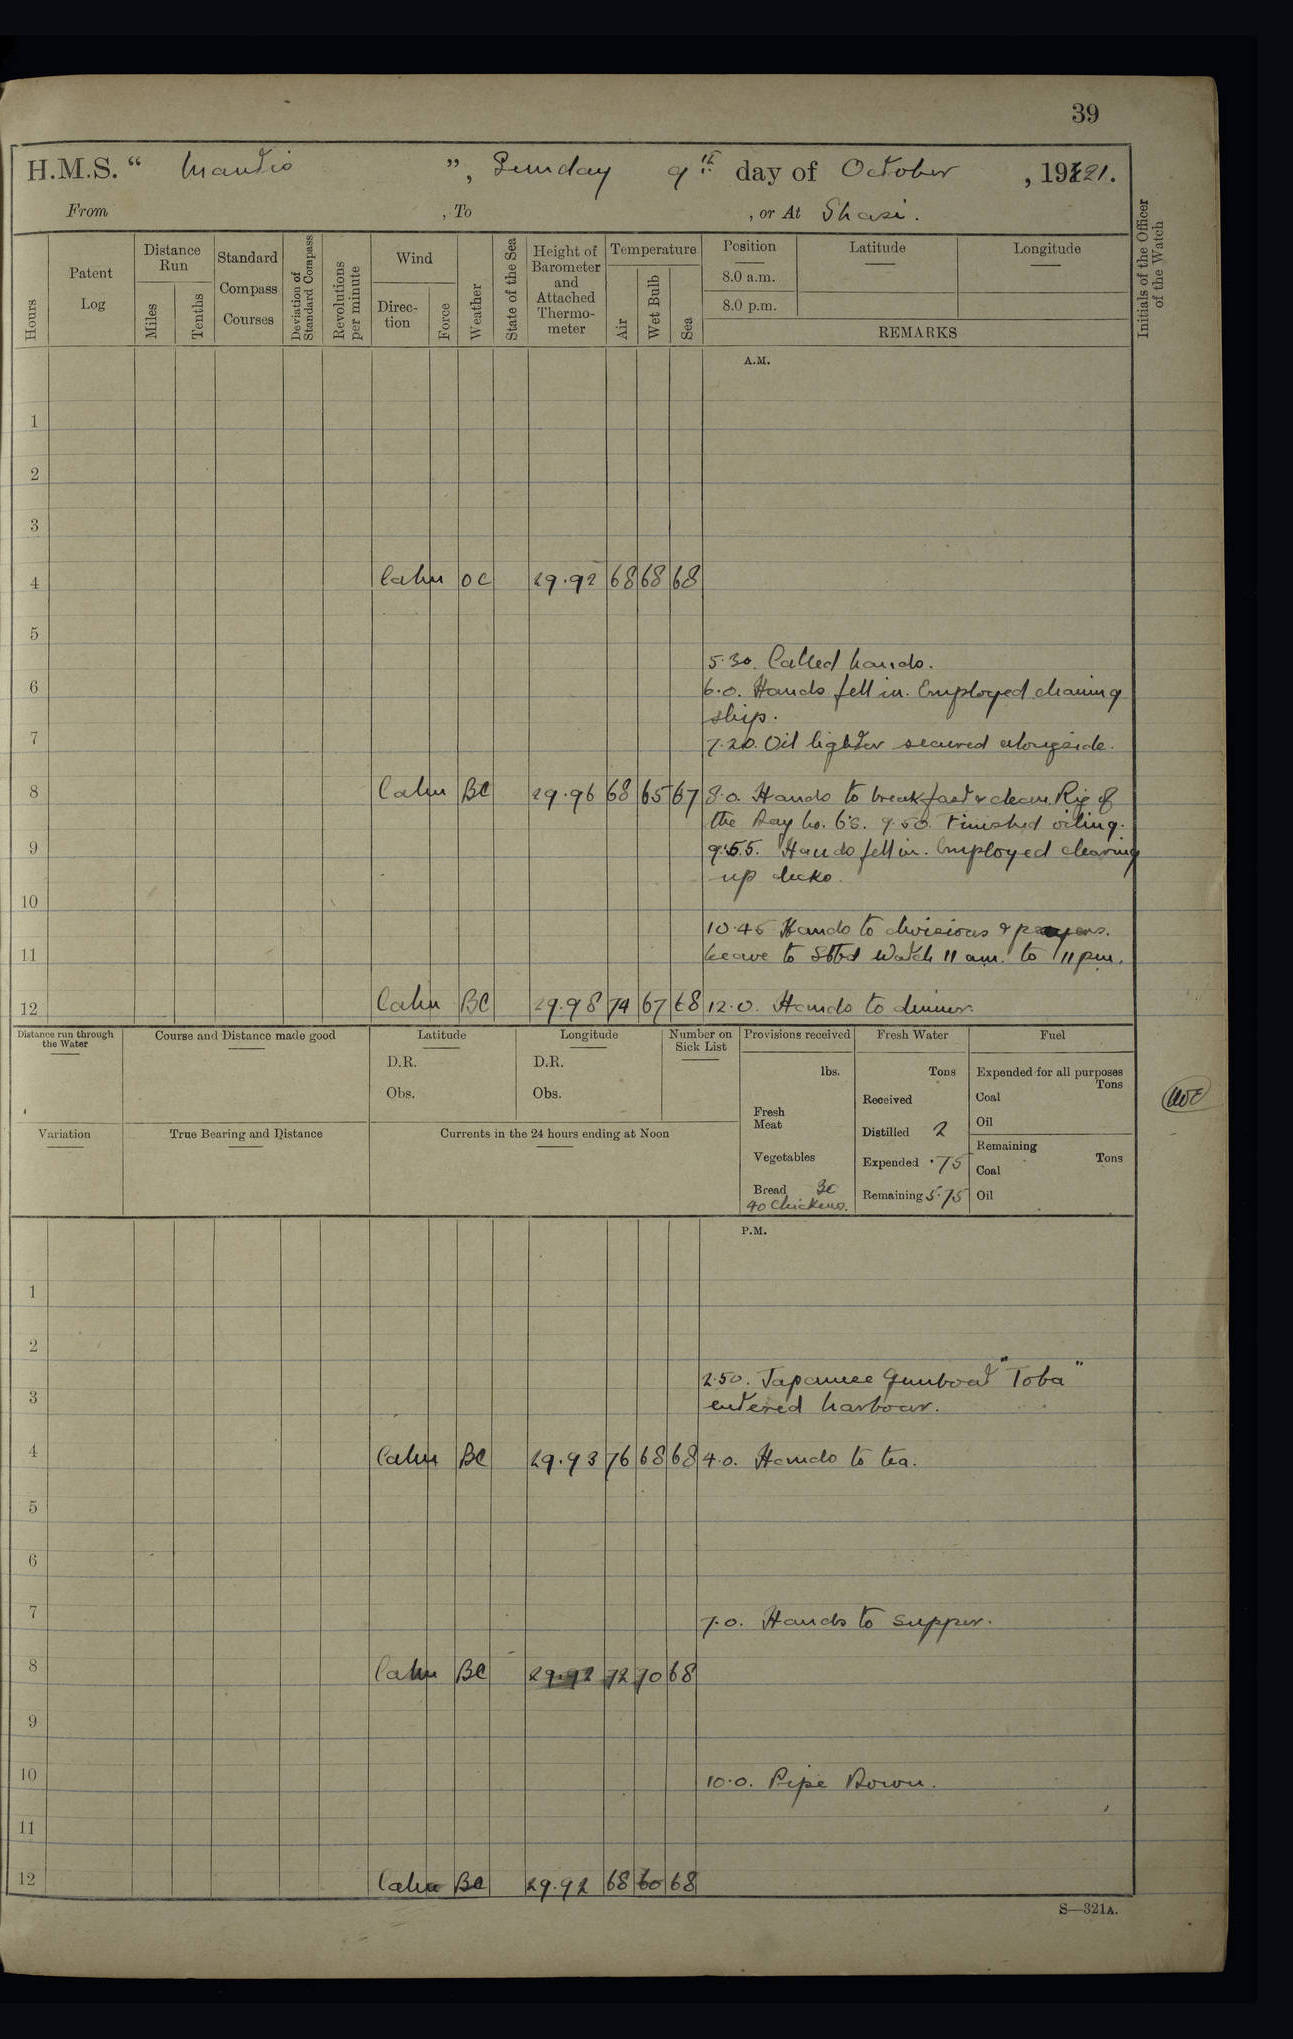 39
H.M.S. “ Mantis ”, Sunday 9th day of October , 1921.
From , To , or At Shasi.
Hours
Patent Log
Distance Run
Miles
Tenths
Standard Compass Courses
Deviation of Standard Compass
Revolutions per minute
Wind
Direc-tion
Force
Weather
State of the Sea
Height of Barometer and Attached Thermo-meter
Temperature
Air
Wet Bulb
Sea
Position
8.0 a.m.
8.0 p.m.
Latitude
Longitude
REMARKS
Initials of the Officer of the Watch
A.M.
1
2
3
4 Calm OC 29.92 68 68 68
5
5.30. Called hands.
6 6.0. Hands fell in. Employed cleaning
ship.
7 7.20. Oil lighter secured alongside.
8 Calm BC 29.96 68 65 67 8.0. Hands to breakfast & clean. Rig of
the Day No. 6's. 9.50. Finished oiling.
9 9.55. Hands fell in. Employed clearing
up decks.
10
10.45 Hands to divisions & prayers.
11 Leave to Stbd Watch 11 am. to 11 pm.
12 Calm BC 29.98 74 67 68 12.0. Hands to dinner.
Distance run through the Water
Course and Distance made good
Latitude
D.R.
Obs.
Longitude
D.R.
Obs.
Number on Sick List
Provisions received
lbs.
Fresh Meat
Vegetables
Bread 30
40 Chickens.
Fresh Water
Tons
Received
Distilled 2
Expended .75
Remaining 5.75
Fuel
Expended for all purposes
Tons
Coal
Oil
Remaining
Tons
Coal
Oil
Variation
True Bearing and Distance
Currents in the 24 hours ending at Noon
P.M.
1
2
2.50. Japanese Gunboat "Toba"
3 entered harbour.
4 Calm BC 29.93 76 68 68 4.0. Hands to tea.
5
6
7 7.0. Hands to supper.
8 Calm BC 29.92 72 70 68
9
10 10.0. Pipe Down.
11
12 Calm BC 29.92 68 60 68
S—321A.